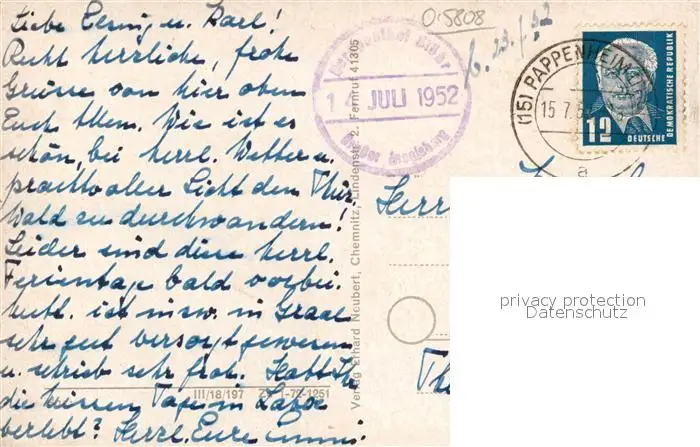 Liebe Erni u. Karl!
Recht herzliche, frohe
Grüsse von hier oben
Euch Allen. Wie ist es
schön, bei herrl. Wetter u.
prachtvoller Sicht den Thür.
Wald zu durchwandern!
Leider sind diese herrl.
Ferientage bald vorbei.
ist in Graal
sehr gut versorgt gewesen
u. schrieb sehr froh. Habt Ihr
die heissen Tage in
verlebt? Herzl. Eure
O.5808
14 JULI 1952
Großer Inselsberg
(15) PAPPENHEIM
15.7.5
a
12
DEUTSCHE
DEMOKRATISCHE REPUBLIK
Verlag Erhard Neubert, Chemnitz, Lindenstr. 2. Fernruf 41305
III/18/197 1-72-1251
privacy protection
Datenschutz